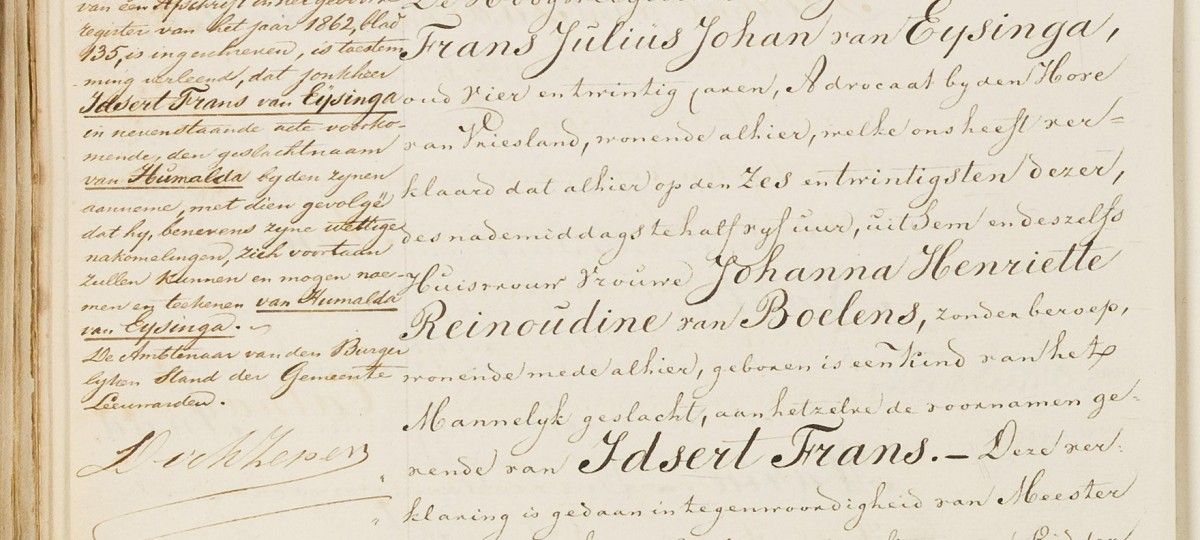 van een Afschrift in het geboorte
register van het jaar 1862, blad
135, is ingeschreven, is toestem
ming verleend, dat Jonkheer
Idsert Frans van Eysinga
in nevenstaande acte voorko-
mende, den geslachtnaam
van Humalda by den zynen
aanneme, met dien gevolge
dat hy, benevens zyne wettige
nakomelingen, zich voortaan
zullen kunnen en mogen noe-
men en teekenen van Humalda
van Eysinga.
De Ambtenaar van den Burger
lyken Stand der Gemeente
Leeuwarden.
Frans Julius Johan van Eysinga,
oud vier en twintig jaren, Advocaat by den Hove
van Vriesland, wonende alhier, welke ons heeft ver=
klaard dat alhier op den zes en twintigsten dezer,
des nademiddags te half vyf uur, uit hem en deszelfs
Huisvrouw Vrouwe Johanna Henriette
Reinoudine van Boelens, zonder beroep,
wonende mede alhier, geboren is een kind van het
Mannelyk geslacht, aan hetzelve de voornamen ge-
vende van Idsert Frans.— Deze ver-
klaring is gedaan in tegenwoordigheid van Meester